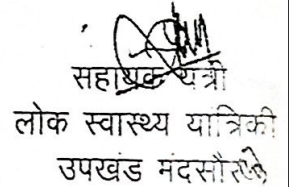 सहायक यंत्री
लोक स्वास्थ्य यांत्रिकी
उपखंड मंदसौर